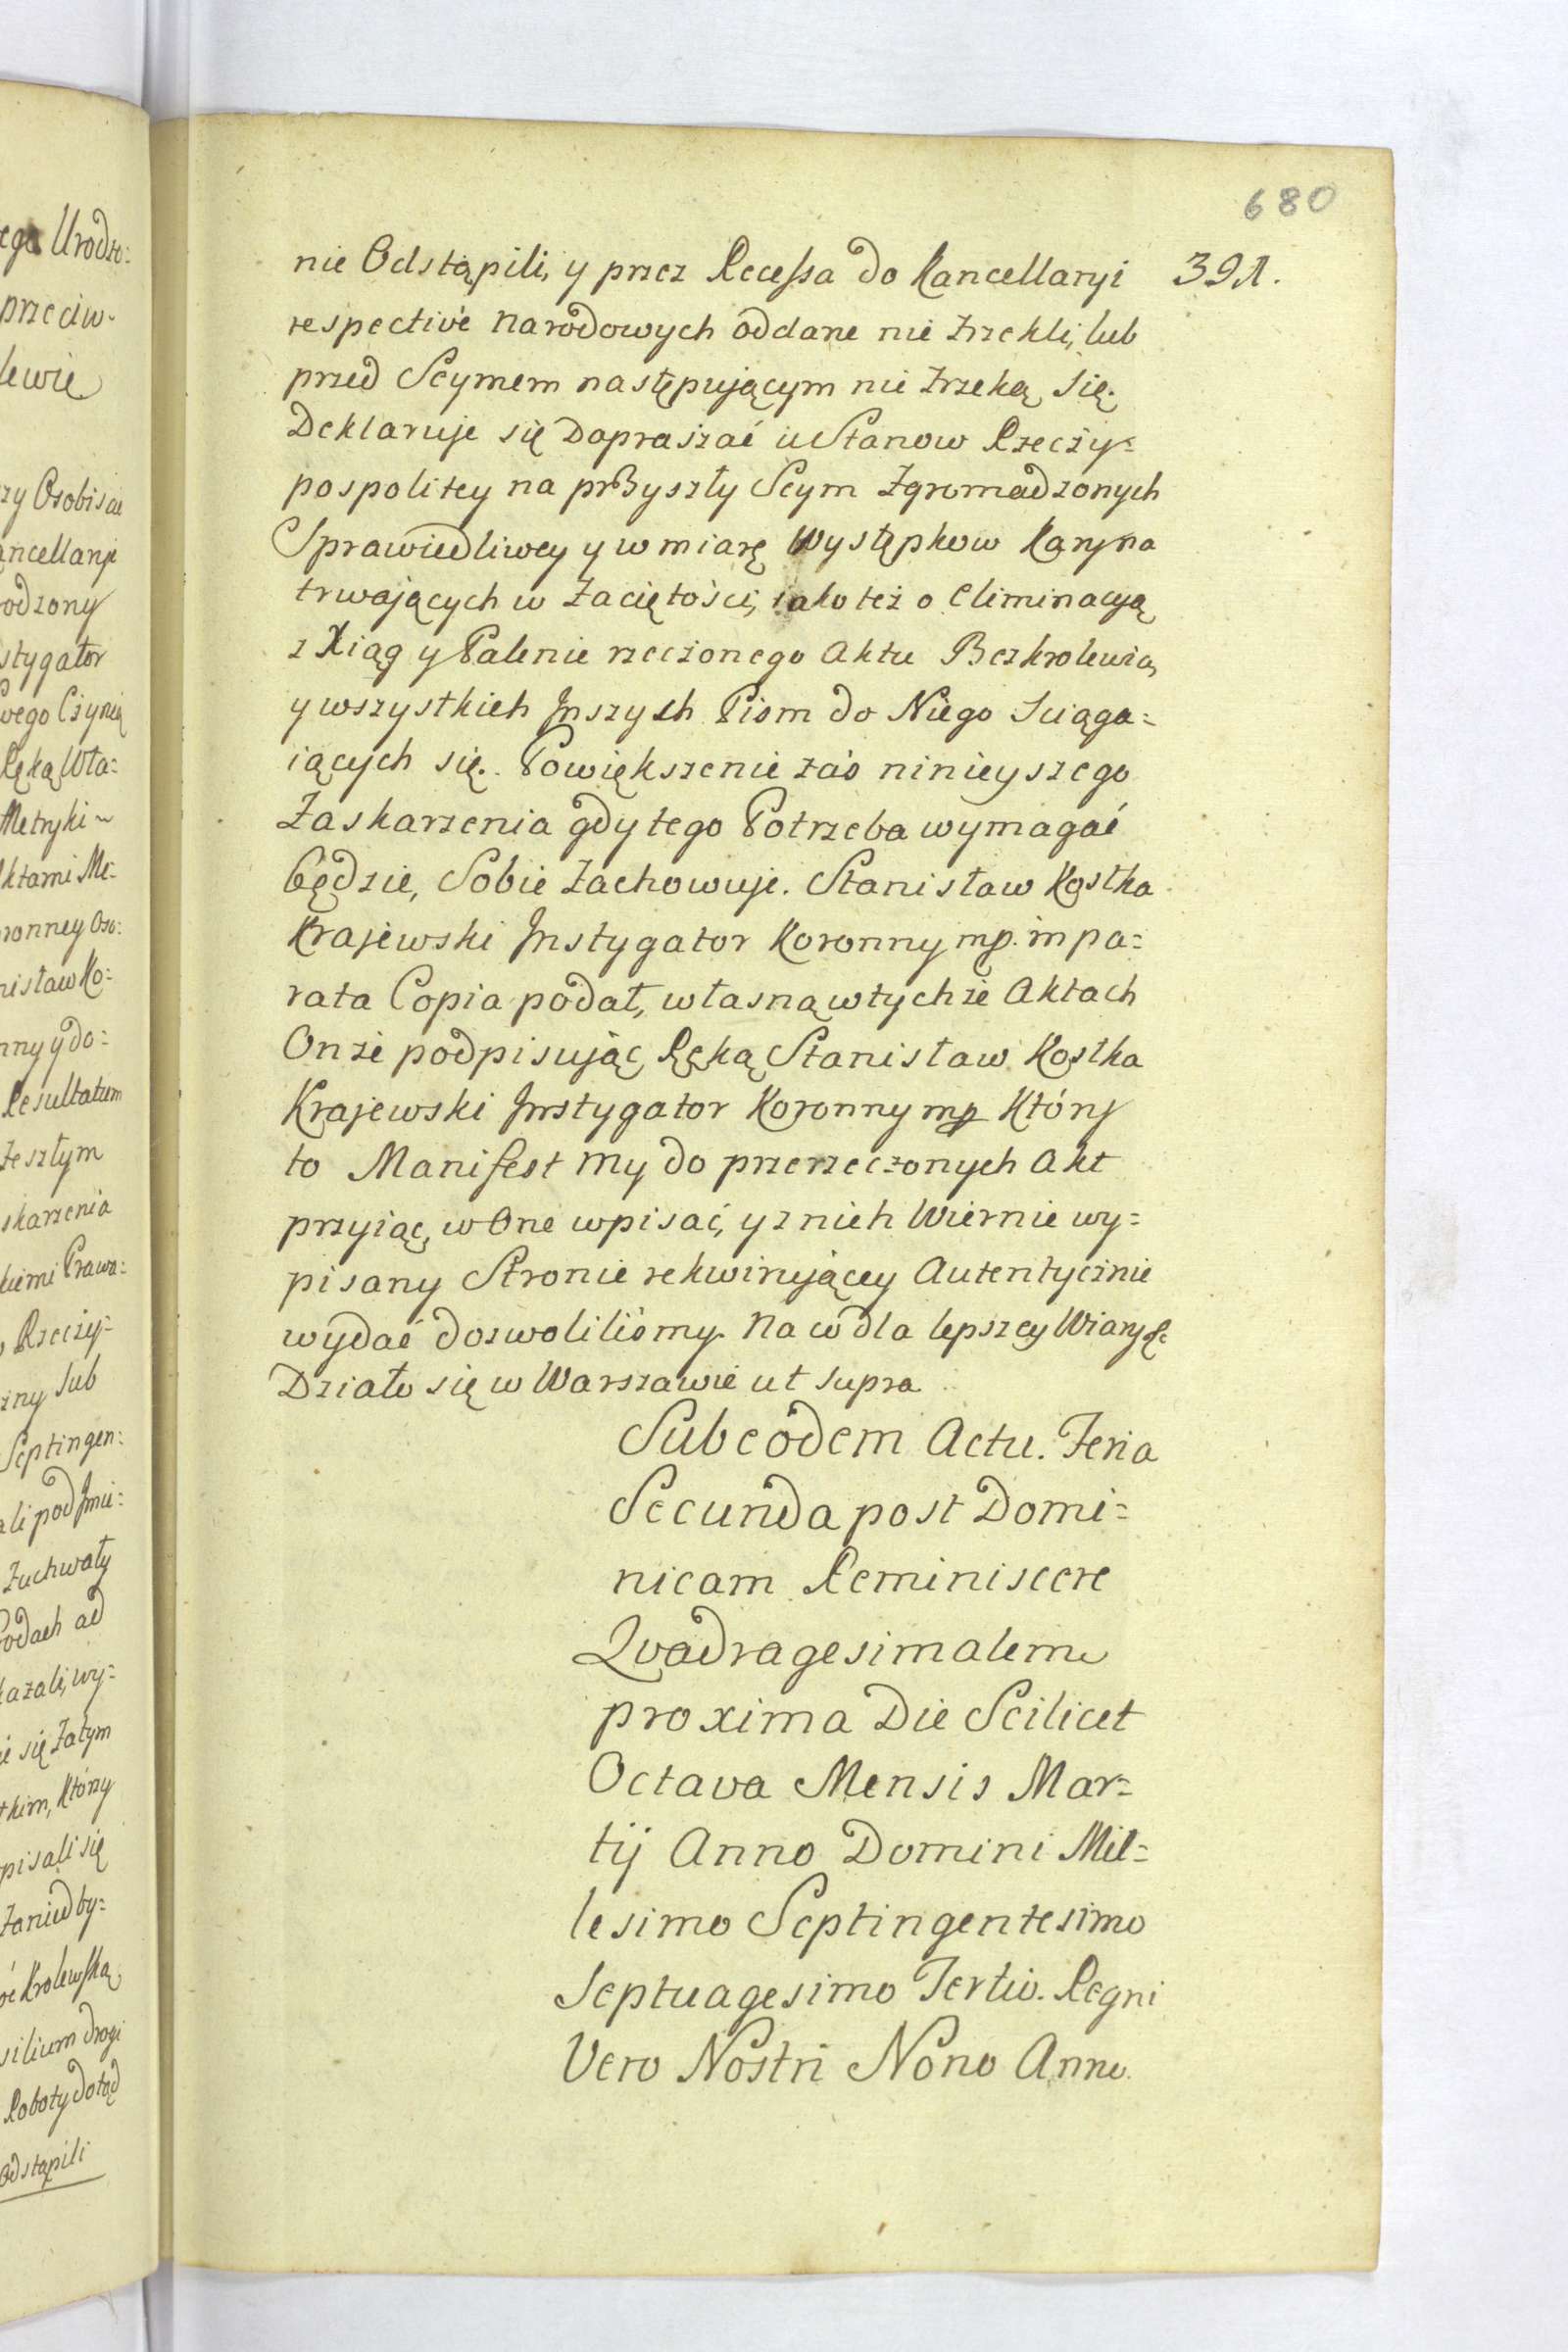 680
391.
nie Odstąpili, y przez Recessa do Kancellaryi
respectivè Narodowych oddane nie zrzekli, lub
przed Seymem następującym nie zrzeką się.
Deklaruje się Dopraszać u Stanow Rzeczy=
pospolitey na przyszły Seym Zgromadzonych
Sprawiedliwey y w miarę Występkow Kary na
trwających w Zaciętości, iako też o Eliminacyą
z Xiąg y Palenie rzeczonego Aktu Bezkrolewia,
y wszystkich Inszych Pism do Niego Sciąga=
iących się. Powiększenie zaś ninieyszego
Zaskarzenia gdy tego Potrzeba wymagać
będzie, Sobie Zachowuje. Stanisław Kostka
Krajewski Instygator Koronny mp. in pa=
rata Copia podał, własną w tychże Aktach
Onże podpisując Ręką Stanisław Kostka
Krajewski Instygator Koronny mp Który
to Manifest My do przerzeczonych Akt
przyiąć, w One wpisać, y z nich Wiernie wy=
pisany Stronie rekwirującey Autentycznie
wydać dozwoliliśmy. Na co dla lepszey Wiary &c
Działo się w Warszawie ut supra
Sub eodem Actu. Feria
Secunda post Domi=
nicam Reminiscere
Qvadragesimalem
proxima Die Scilicet
Octava Mensis Mar=
tij Anno Domini Mil=
lesimo Septingentesimo
Septuagesimo Tertio. Regni
Vero Nostri Nono Anno.
Urodzo=
przeciw=
lewie
zy Osobiscie
ancellarye
odzony
stygator
wego Czynią
Ręką Wła=
Metryki ~
ktami Me=
ronney Oso=
nisław Ko=
nny y do=
Resultatum
zeszłym
skarzenia
kiemi Prawa=
Rzeczy=
zny lub
Septingen=
ali pod Imie=
Zuchwały
rodach ad
kazali, wy=
ie się Zatym
tkim, Który
pisali się
Zaniedby=
oć Krolewską
silium drogi
Roboty dotąd
Odstąpili